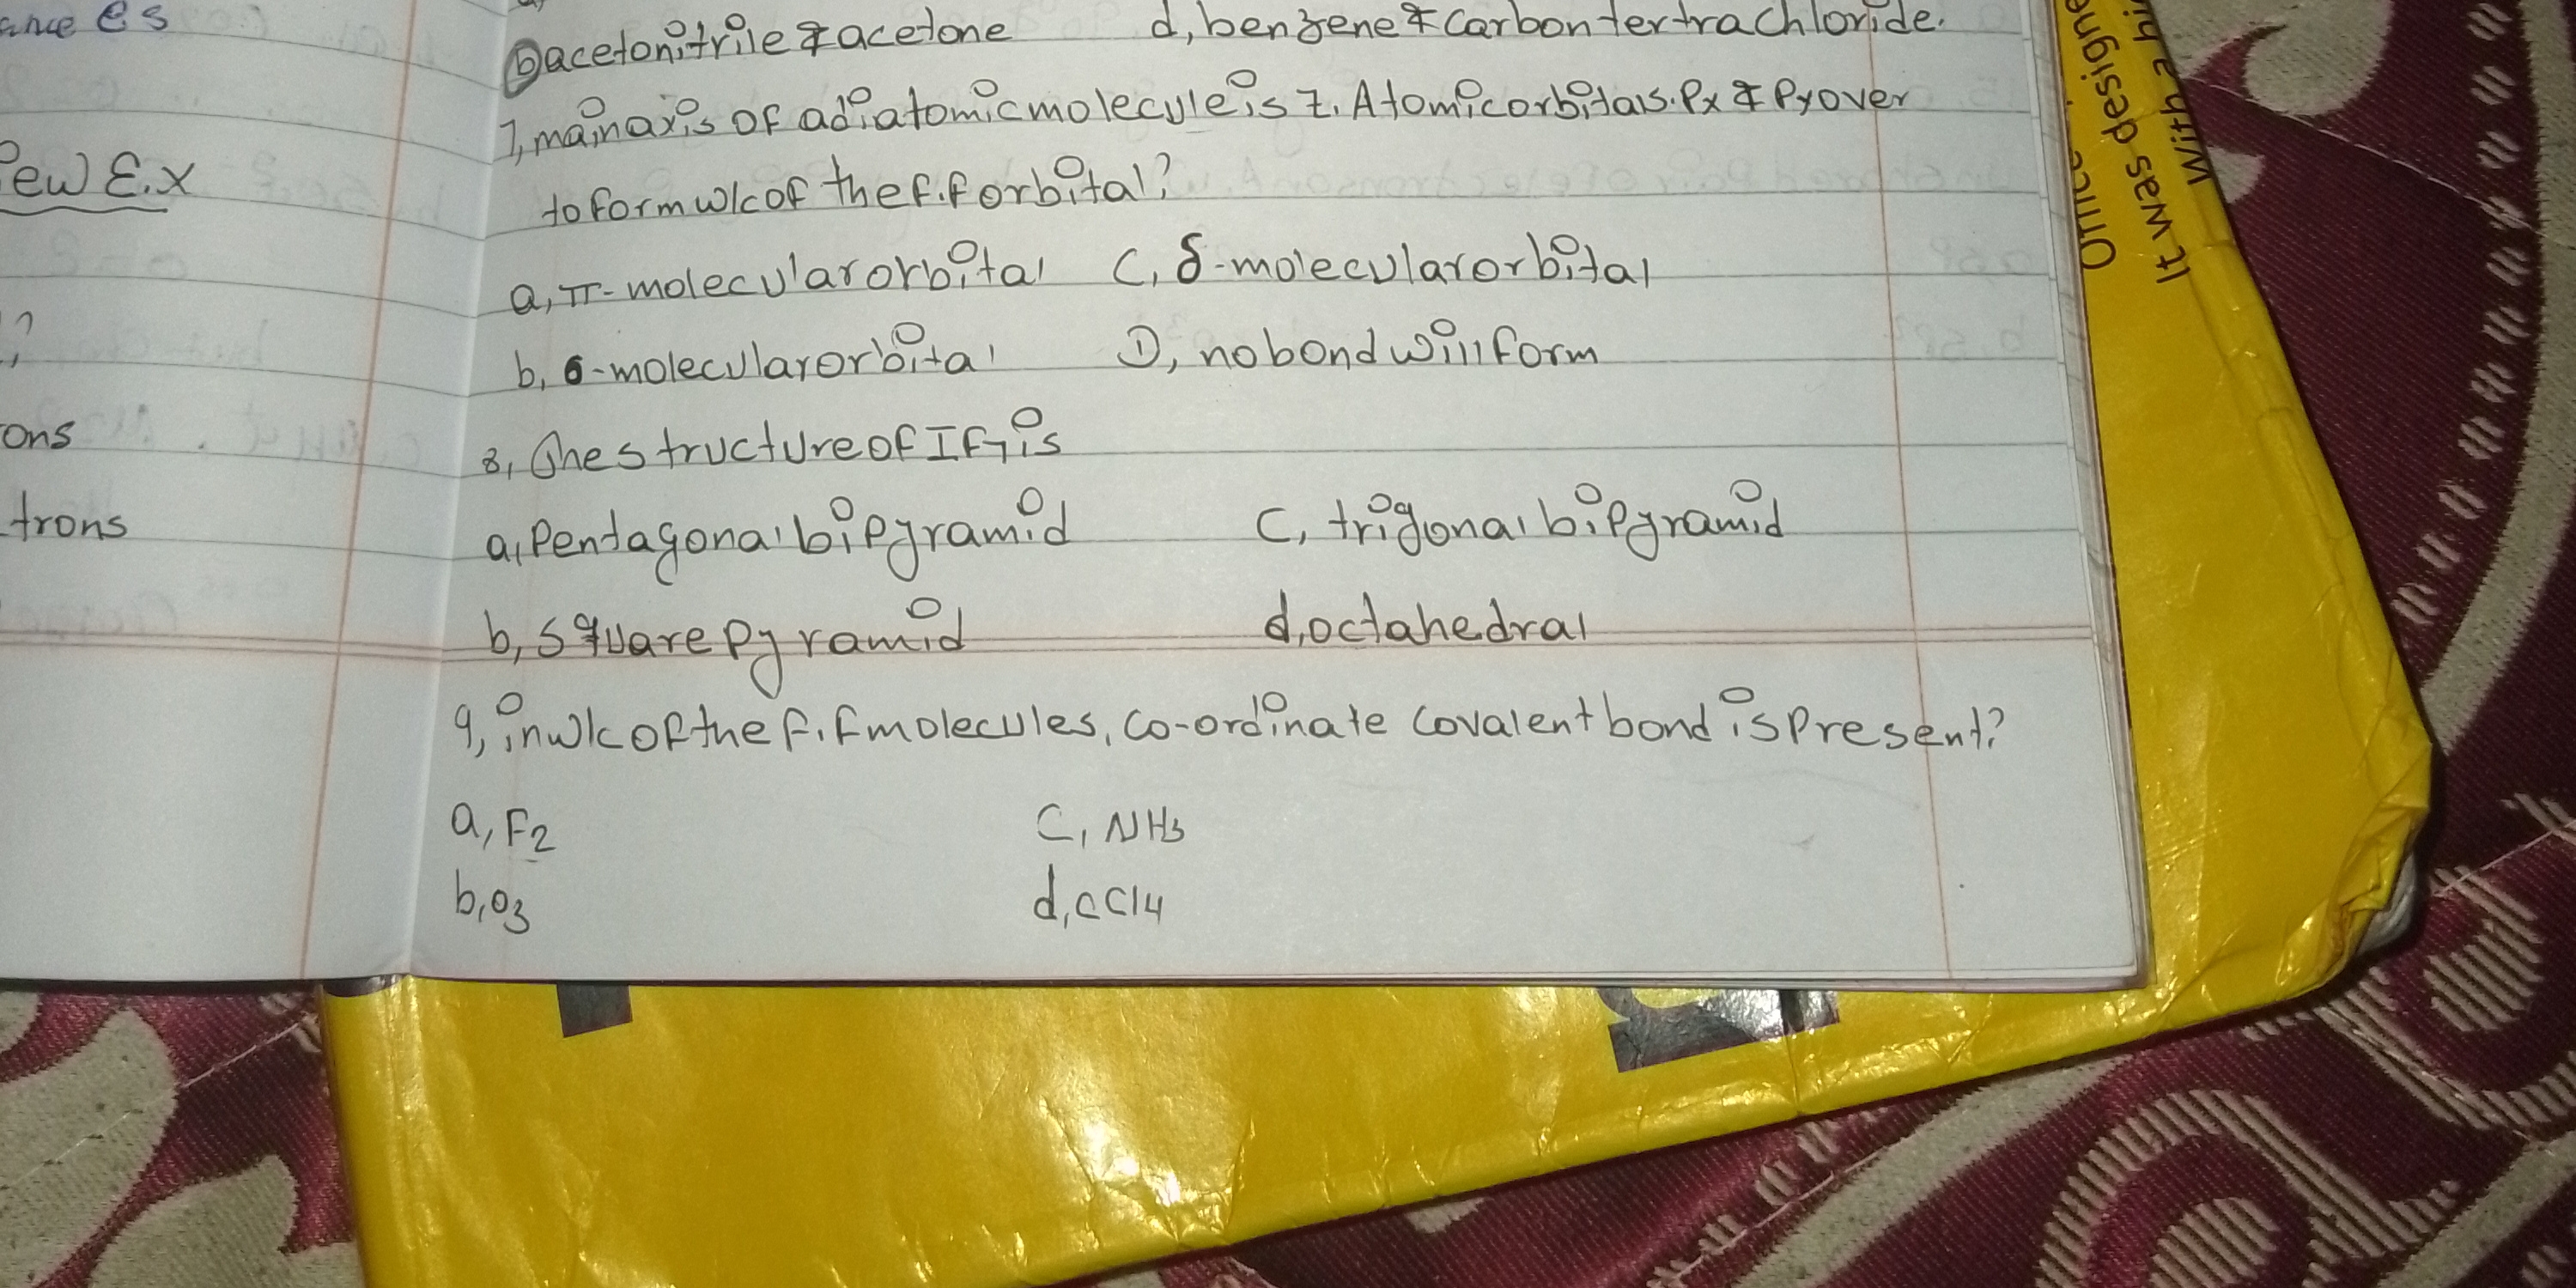 ance es
b, acetonitrile & acetone d, benzene & carbon tertrachloride.
7, main axis of a diatomic molecule is z. Atomic orbitals. Px & Py over
to form w/c of the f.f orbital?
a, π-molecular orbital C, δ-molecular orbital
b, σ-molecular orbital D, no bond will form
8, The structure of IF7 is
a, Pentagonal bipyramid C, trigonal bipyramid
b, square pyramid d, octahedral
9, in w/c of the f.f molecules, co-ordinate covalent bond is present?
a, F2 C, NH3
b, O3 d, CCl4
ew E.X
?
ons
trons
It was designe
With a bi